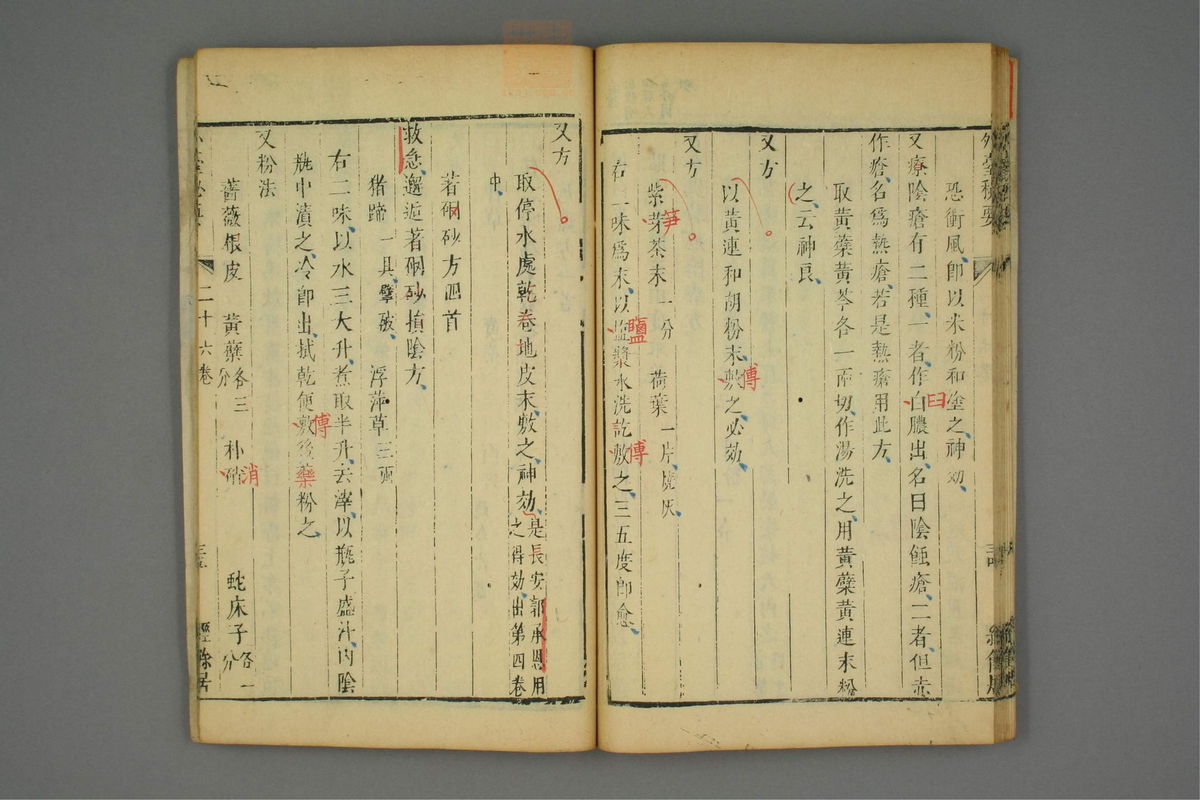 外臺秘要
恐衝風、卽以米粉和塗之、神効、
又療陰瘡有二種、一者、作白膿出、名曰陰蝕瘡、二者但赤
作瘡、名爲熱瘡、若是熱瘡用此方、
取黃蘗黃芩各一兩切、作湯洗之、用黃蘗黃連末粉
之、云神良、
又方
以黃連和胡粉末、敷之、必効、
傅
又方
紫芽茶末一分 荷葉一片燒灰、
筍
右一味爲末、以塩漿水洗訖敷之、三五度卽愈、
鹽
傅
曰
又方
取停水處乾卷地皮末、敷之、神効、是長安郭承恩用
之得効、出第四卷
中、
若硇砂方四首
救急、邂逅著硇砂損陰方、
猪蹄一具、擘破、 浮萍草三兩
右二味、以水三大升、煮取半升、去滓、以瓶子盛汁、內陰
瓶中漬之、冷卽出、拭乾便敷後藥粉之、
傅
又粉法
薔薇根皮 黃蘗各三分 朴硝 蛇床子各一分
消
外臺秘要 二十六卷 三五 經餘居